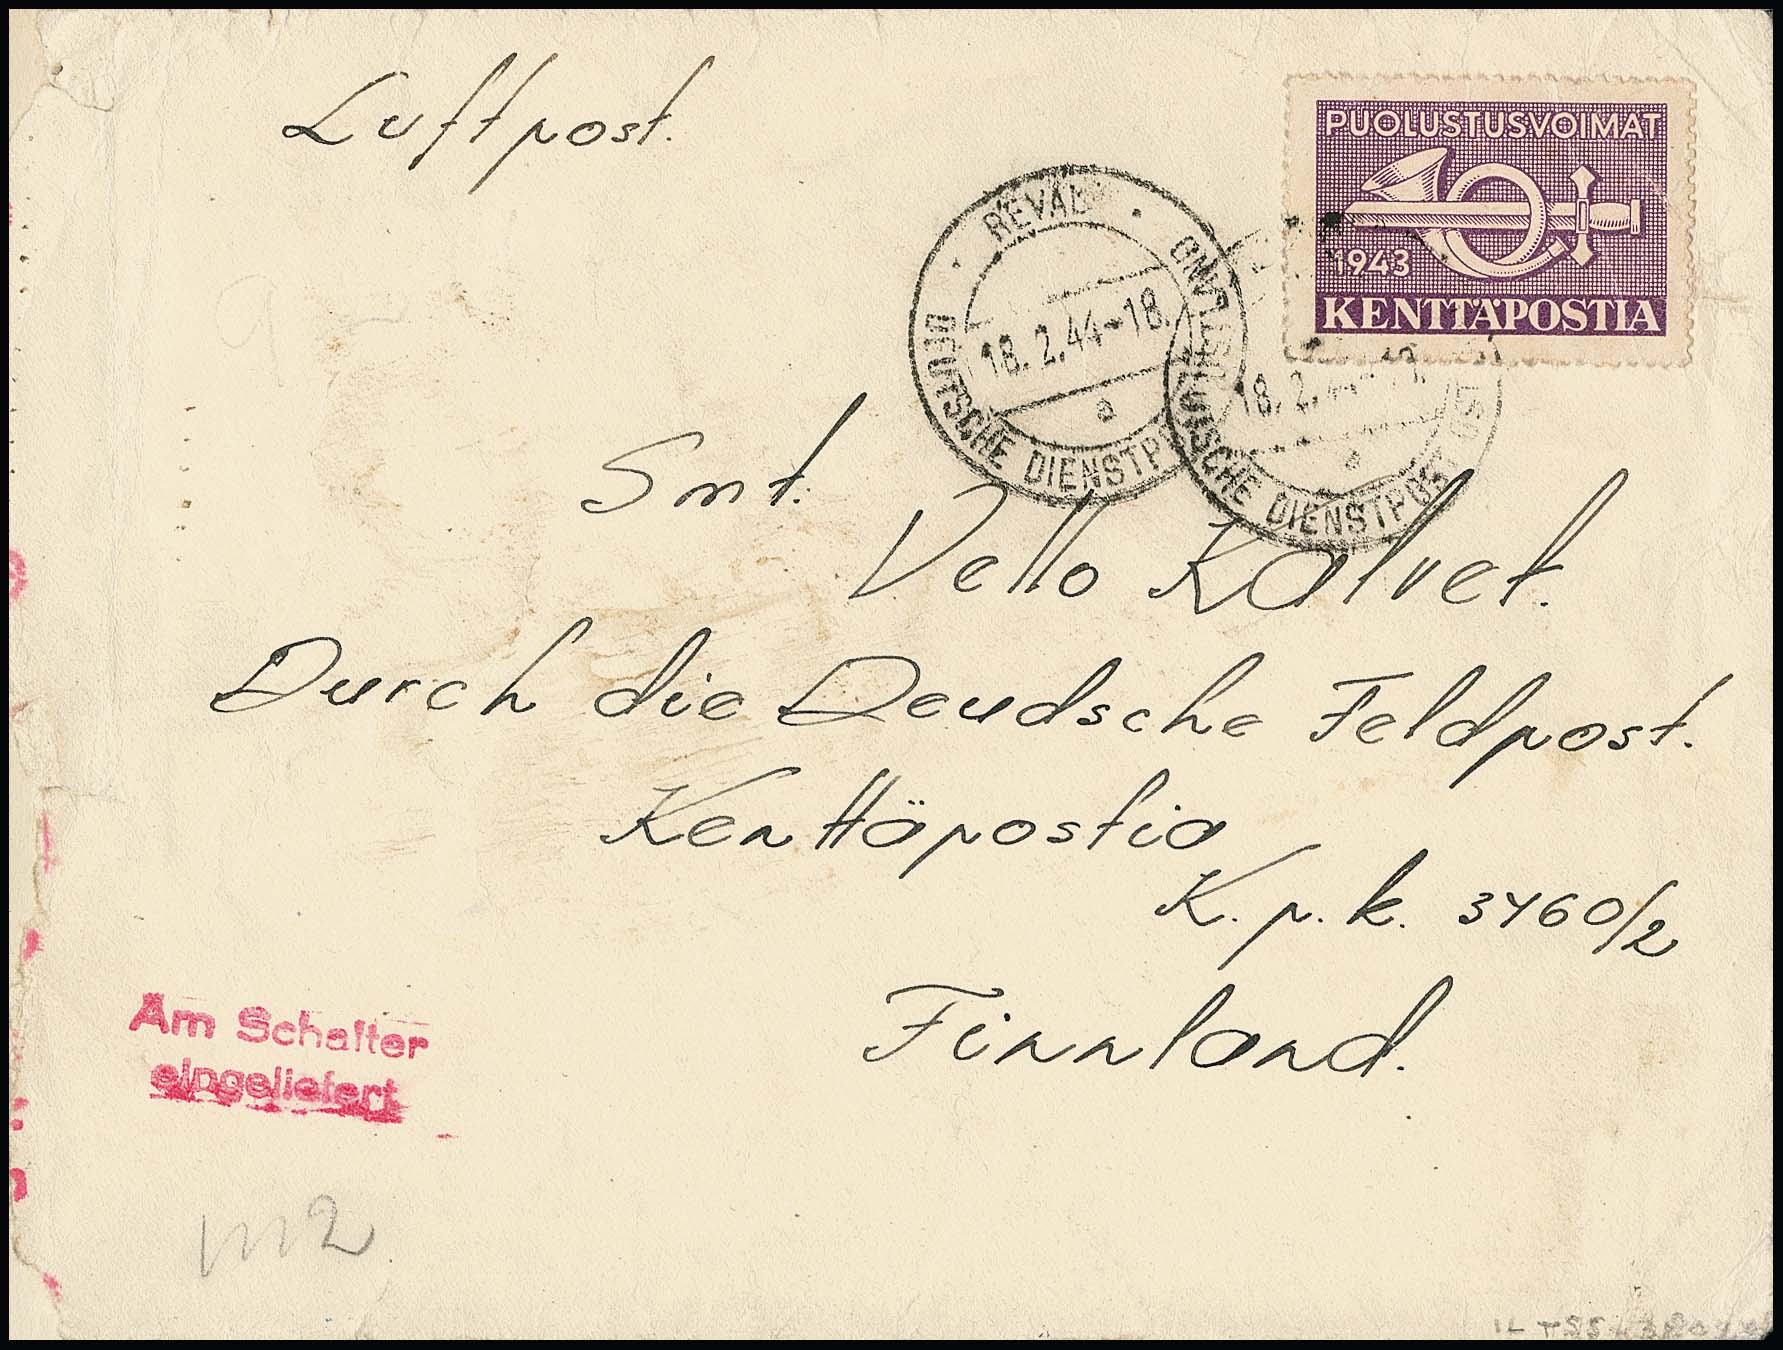 Luftpost.
PUOLUSTUSVOIMAT
1943
KENTTÄPOSTIA
REVAL
DEUTSCHE DIENSTPOST OSTLAND
18.2.44-18.
a
DEUTSCHE DIENSTPOST
18.2.44
a
Smt.
Vello Kalvet.
Durch die Deudsche Feldpost.
Kenttäpostia
K.p.k. 3460/2
Finnland.
Am Schalter
eingeliefert